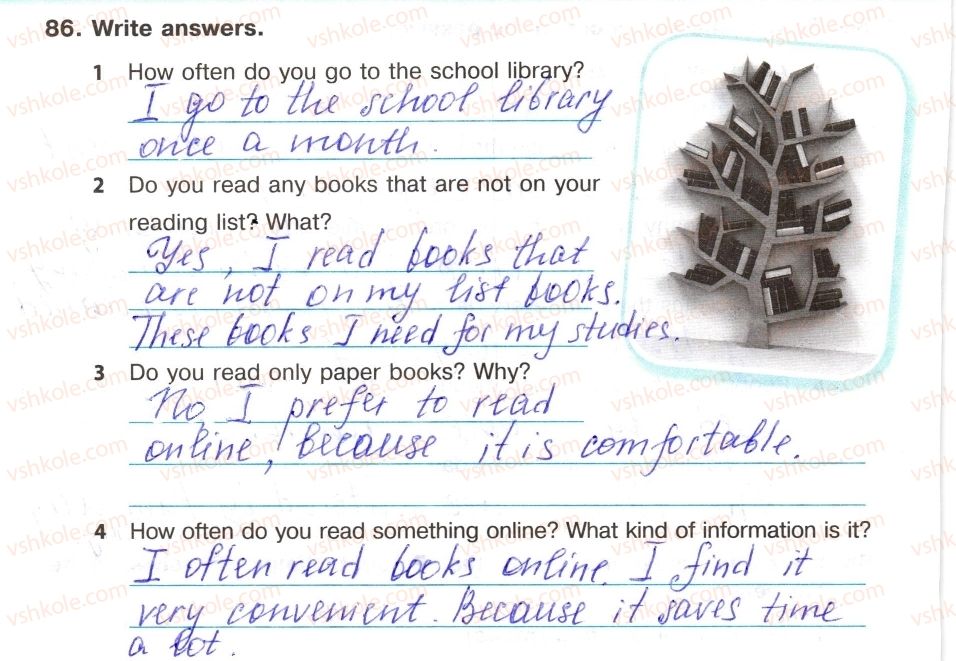 86. Write answers.
1 How often do you go to the school library?
I go to the school library
once a month.
2 Do you read any books that are not on your
reading list? What?
Yes, I read books that
are not on my list books.
These books I need for my studies.
3 Do you read only paper books? Why?
No, I prefer to read
online, because it is comfortable.
4 How often do you read something online? What kind of information is it?
I often read books online. I find it
very convenient. Because it saves time
a lot.
vshkole.com